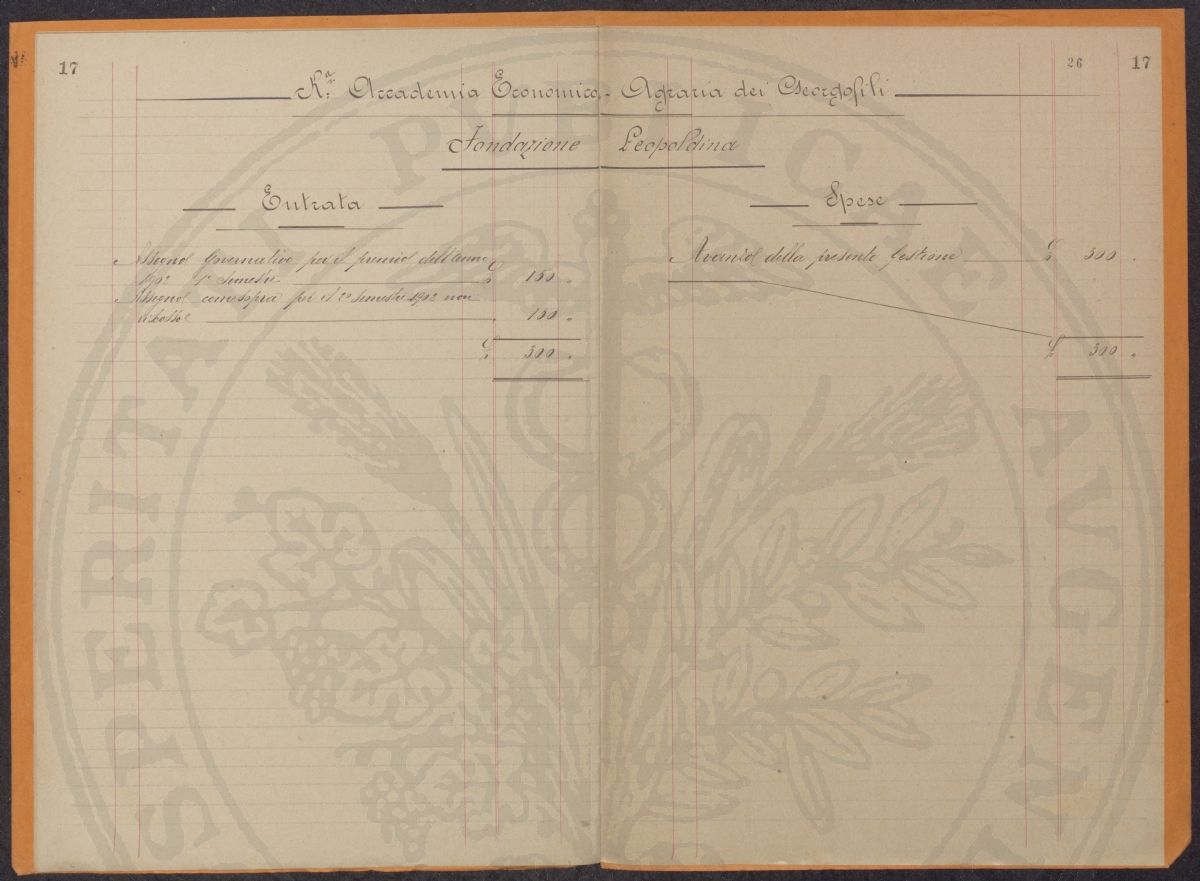 17
26 17
R.ª Accademia Economico-Agraria dei Georgofili
Fondazione Leopoldina
Entrata
Assegno Governativo per il premio dell'anno
1902 1º Semestre £ 150 "
Assegno come sopra per il 2º Semestre 1902 non
" 150 "
£ 300 "
Spese
Avanzo della presente Gestione £ 300 "
£ 300 "
SPERITATI PUBLICAE AUGEN